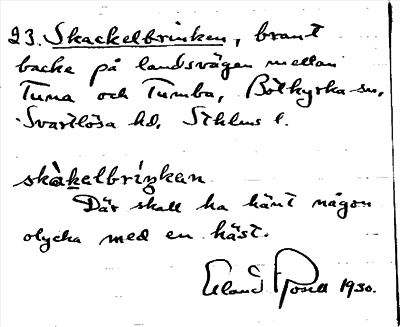 23. Skackelbrinken, brant
backe på landsvägen mellan
Tuna och Tumba, Botkyrka sn,
Svartlösa hd, Sthlms l.
skàkelbriŋkan
Där skall ha hänt någon
olycka med en häst.
Erland Rosell 1930.